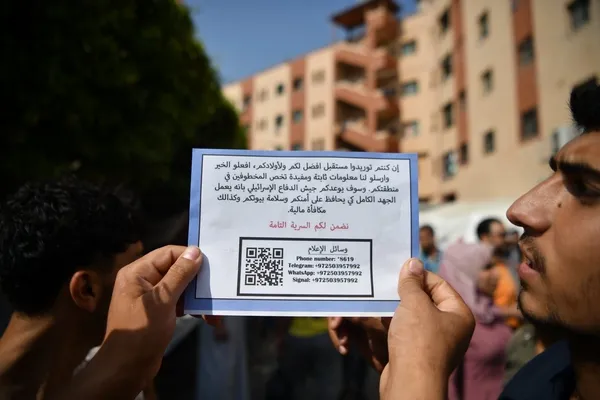 إن كنتم تريدوا مستقبل افضل لكم ولأولادكم، افعلو الخير
وارسلو لنا معلومات ثابتة ومفيدة تخص المخطوفين في
منطقتكم. وسوف يوعدكم جيش الدفاع الإسرائيلي بانه يعمل
الجهد الكامل كي يحافظ على أمنكم وسلامة بيوتكم وكذلك
مكافأة مالية.
نضمن لكم السرية التامة
وسائل الإعلام
Phone number: *8619
Telegram: +972503957992
WhatsApp: +972503957992
Signal: +972503957992